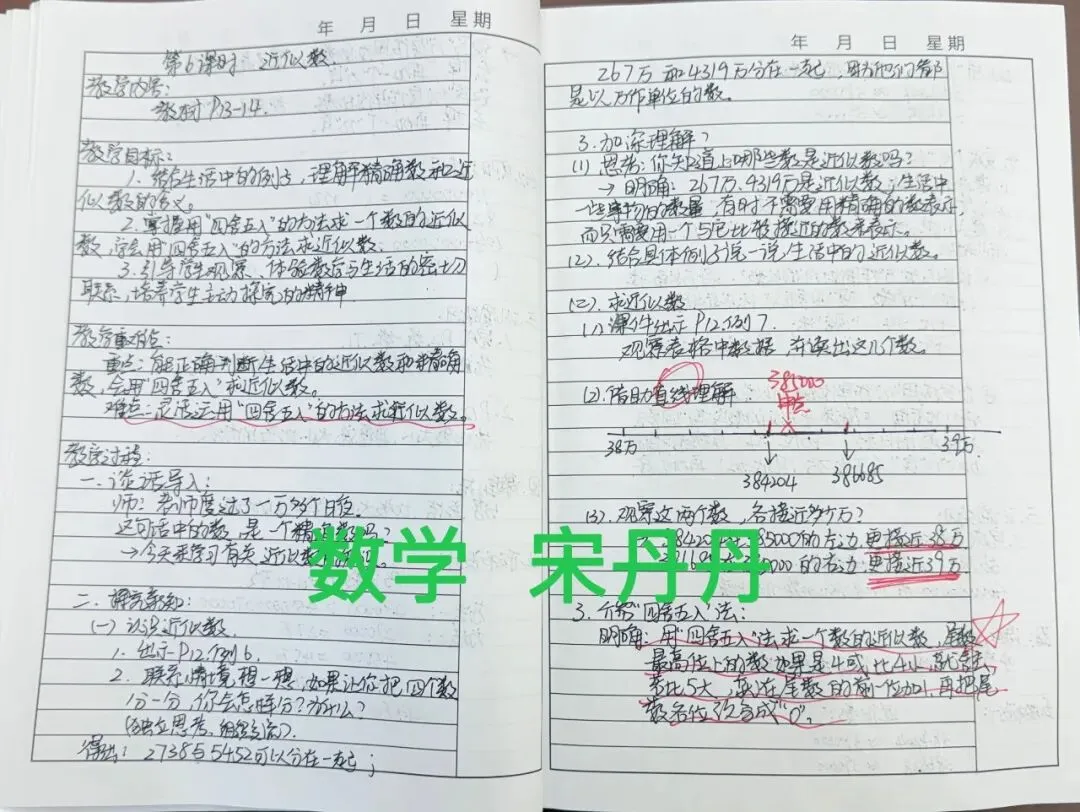 年 月 日 星期
第6课时 近似数
教学内容:
教材P13-14.
教学目标:
1. 结合生活中的例子,理解精确数和近
似数的含义。
2. 掌握用"四舍五入"的方法求一个数的近似
数,学会用"四舍五入"的方法求近似数.
3. 引导学生观察、体验数学与生活的密切
联系,培养学生主动探究的精神
教学重难点:
重点:能正确判断生活中的近似数和精确
数,会用"四舍五入"求近似数。
难点:灵活运用"四舍五入"的方法求近似数。
教学过程:
一. 谈话导入:
师:老师度过了一万多个日子.
这句话中的数,是一个精确数吗?
→今天来学习有关近似数
二. 探究新知:
(一) 认识近似数.
1. 出示P12例6.
2. 联系情境想一想,如果让你把四个数
分一分,你会怎样分?为什么?
(独立思考,组织交流).
得出: 2738与5452可以分在一起;
年 月 日 星期
267万和4319万分在一起,因为他们都
是以万作单位的数。
3. 加深理解?
(1) 思考:你知道上哪些数是近似数吗?
→明确:267万、4319万是近似数;生活中
一些事物的数量,有时不需要用精确的数表示,
而只需要用一个与它比较接近的数来表示。
(2). 结合具体例子说一说生活中的近似数。
(二). 求近似数
(1) 课件出示P12例7.
观察表格中数据,并读出这几个数。
(2). 借助直线理解:
385000
中点
38万 39万
384204 386685
(3). 观察这两个数,各接近多少万?
384204在385000的左边 更接近38万
的右边 更接近39万
3. 介绍"四舍五入"法:
明确:用"四舍五入"法求一个数的近似数,尾数
最高位上的数如果是4或比4小,就舍去,
大,就在尾数的前一位加1,再把尾
数各位改写成"0"。
数学 宋丹丹